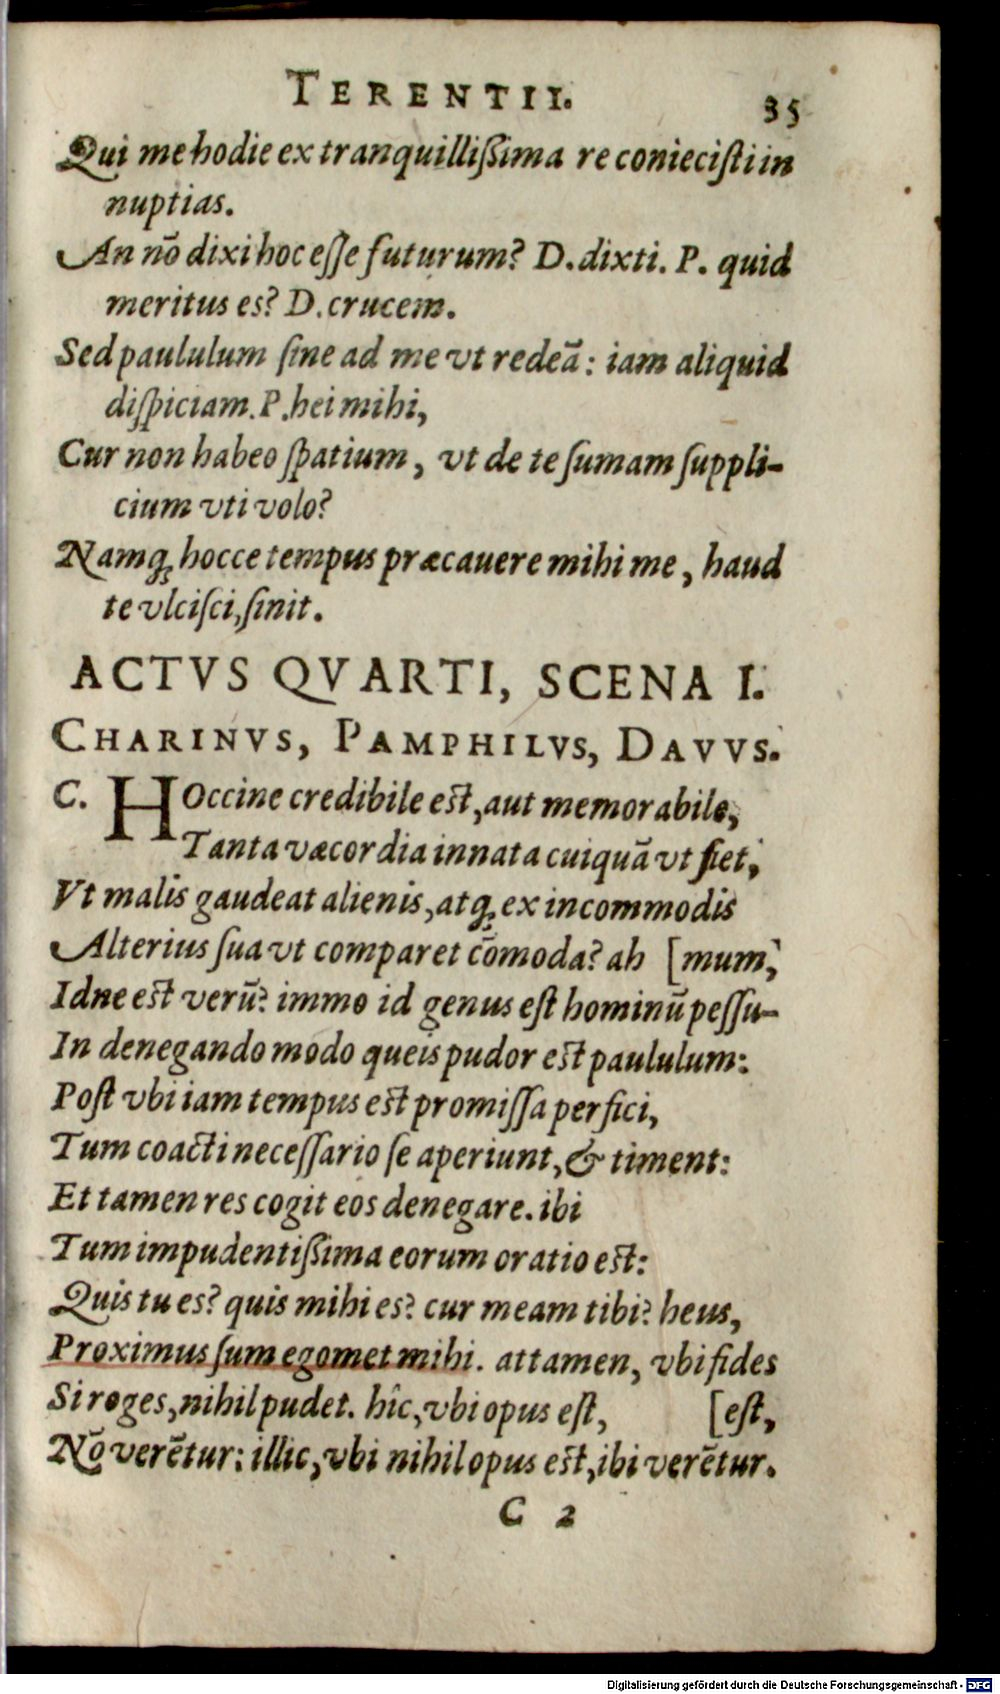 TERENTII. 35
Qui me hodie ex tranquillißima re coniecisti in
nuptias.
An nō dixi hoc esse futurum? D. dixti. P. quid
meritus es? D. crucem.
Sed paululum sine ad me vt redeā: iam aliquid
dispiciam. P. hei mihi,
Cur non habeo spatium, vt de te sumam suppli-
cium vti volo?
Namq; hocce tempus præcauere mihi me, haud
te vlcisci, sinit.
ACTVS QVARTI, SCENA I.
CHARINVS, PAMPHILVS, DAVVS.
C. HOccine credibile est, aut memorabile,
Tanta væcordia innata cuiquā vt siet,
Vt malis gaudeat alienis, atq; ex incommodis
Alterius sua vt comparet cōmoda? ah [mum,
Idne est verū? immo id genus est hominū pessu-
In denegando modo queis pudor est paululum:
Post vbi iam tempus est promissa perfici,
Tum coacti necessario se aperiunt, & timent:
Et tamen res cogit eos denegare. ibi
Tum impudentißima eorum oratio est:
Quis tu es? quis mihi es? cur meam tibi? heus,
Proximus sum egomet mihi. attamen, vbi fides
Si roges, nihil pudet. hîc, vbi opus est, [est,
Nō verētur: illic, vbi nihil opus est, ibi verētur.
C 2
Digitalisierung gefördert durch die Deutsche Forschungsgemeinschaft - DFG